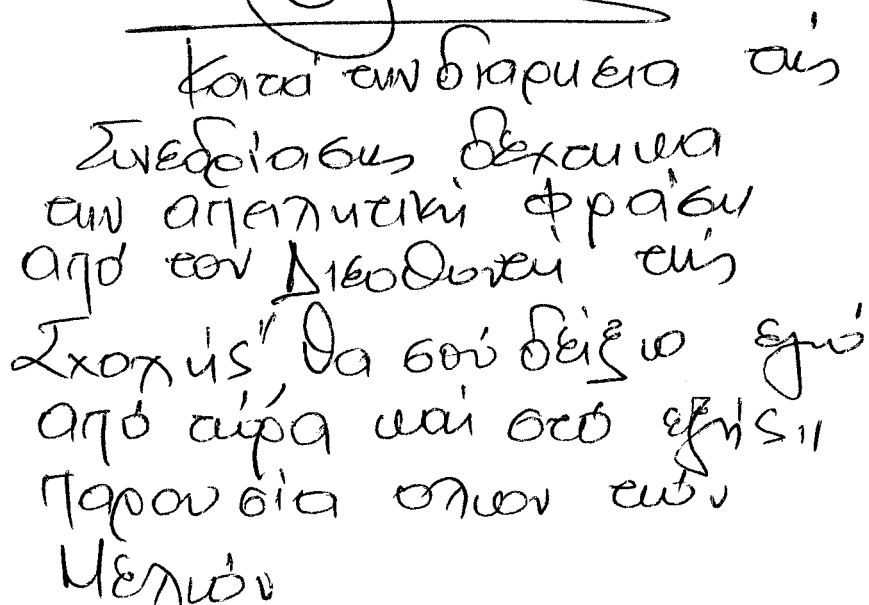 Κατά την διαρκεια τής
Συνεδρίασης δέχτηκα
την απειλητική φράση
από τον Διευθυντή τής
Σχολής "θα σού δείξω εγώ
από τώρα και στό εξής"
παρουσία ολων τών
Μελών